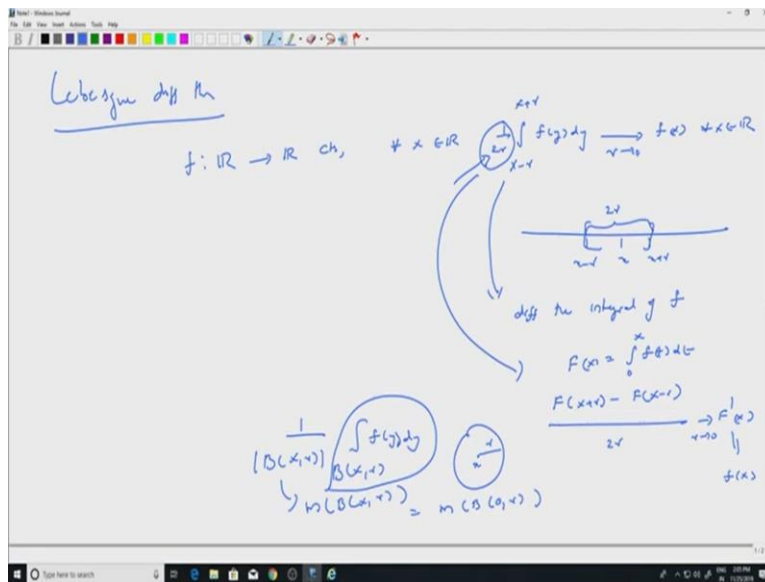 Note1 - Windows Journal
File Edit View Insert Actions Tools Help
B I
Lebesgue diff th
f : ℝ → ℝ cts, ∀ x ∈ ℝ 1/2r ∫_{x-r}^{x+r} f(y) dy →_{r→0} f(x) ∀ x ∈ ℝ
2r
x-r x x+r
diff the integral of f
F(x) = ∫_0^x f(t) dt
F(x+r) - F(x-r) / 2r →_{r→0} F'(x)
||
f(x)
1/|B(x,r)| ∫_{B(x,r)} f(y) dy
x r
m(B(x,r)) = m(B(0,r))
1/2
Type here to search
ENG 2:05 PM
IN 11/25/2019